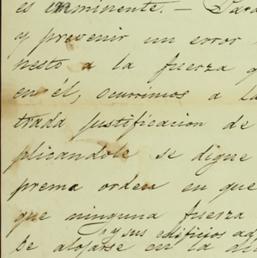 es inminente. — Para
y prevenir un error
nesto a la fuerza q
en él, ocurrimos a la
trada justificacion de
plicandole se digne
prema orden en que
que ninguna fuerza
y sus edificios ad
de alojarse en la